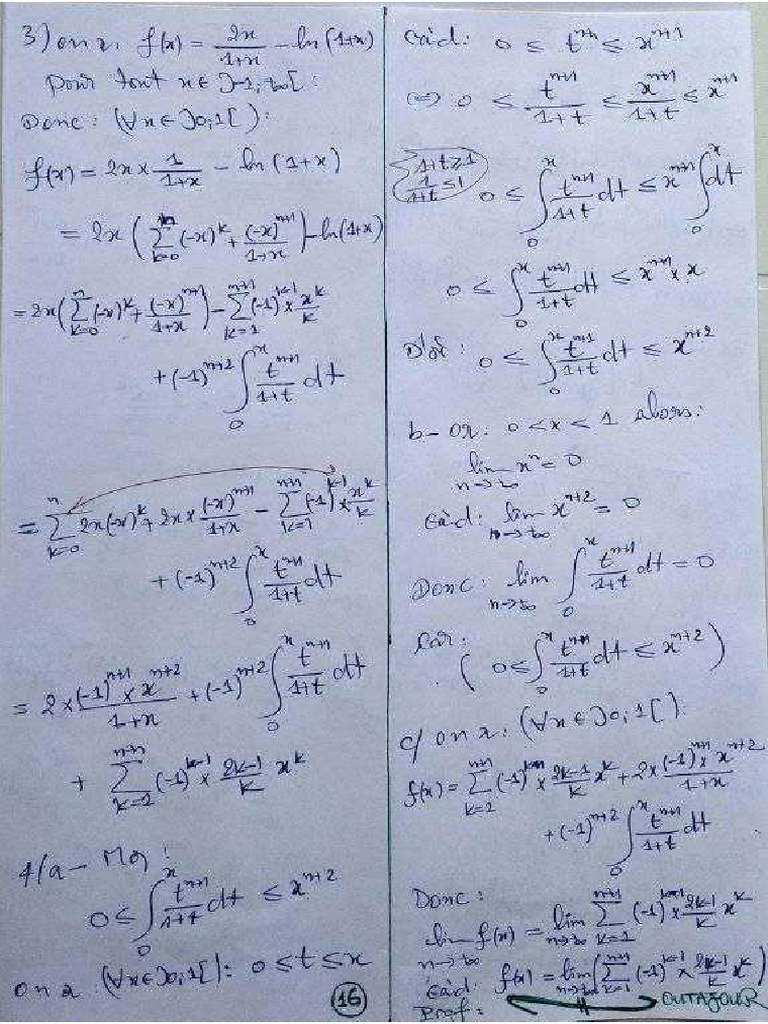 3) on a: f(x) = 2x/(1+x) - ln(1+x)
pour tout x ∈ ]-1; +∞[ :
Donc: (∀x ∈ ]0;1[):
f(x) = 2x × 1/(1+x) - ln(1+x)
= 2x ( ∑_{k=0}^{n} (-x)^k + (-x)^{n+1}/(1+x) ) - ln(1+x)
= 2x ( ∑_{k=0}^{n} (-x)^k + (-x)^{n+1}/(1+x) ) - ∑_{k=1}^{n+1} (-1)^{k-1} × x^k/k
+ (-1)^{n+2} ∫_0^x t^{n+1}/(1+t) dt
= ∑_{k=0}^{n} 2x(-x)^k + 2x × (-x)^{n+1}/(1+x) - ∑_{k=1}^{n+1} (-1)^{k-1} × x^k/k
+ (-1)^{n+2} ∫_0^x t^{n+1}/(1+t) dt
= 2 × (-1)^{n+1} × x^{n+2}/(1+x) + (-1)^{n+2} ∫_0^x t^{n+1}/(1+t) dt
+ ∑_{k=1}^{n+1} (-1)^{k-1} × (2k-1)/k x^k
4/a - Mq:
0 ≤ ∫_0^x t^{n+1}/(1+t) dt ≤ x^{n+2}
on a: (∀x ∈ ]0;1[): 0 ≤ t ≤ x
16
càd: 0 ≤ t^{n+1} ≤ x^{n+1}
⇔ 0 ≤ t^{n+1}/(1+t) ≤ x^{n+1}/(1+t) ≤ x^{n+1}
{ 1+t ≥ 1
1/(1+t) ≤ 1
0 ≤ ∫_0^x t^{n+1}/(1+t) dt ≤ x^{n+1} ∫_0^x dt
0 ≤ ∫_0^x t^{n+1}/(1+t) dt ≤ x^{n+1} × x
D'où: 0 ≤ ∫_0^x t^{n+1}/(1+t) dt ≤ x^{n+2}
b - on a: 0 < x < 1 alors:
lim_{n→+∞} x^n = 0
càd: lim_{n→+∞} x^{n+2} = 0
Donc: lim_{n→+∞} ∫_0^x t^{n+1}/(1+t) dt = 0
car:
( 0 ≤ ∫_0^x t^{n+1}/(1+t) dt ≤ x^{n+2} )
c/ on a: (∀x ∈ ]0;1[):
f(x) = ∑_{k=1}^{n+1} (-1)^{k-1} × (2k-1)/k x^k + 2 × (-1)^{n+1} × x^{n+2}/(1+x)
+ (-1)^{n+2} ∫_0^x t^{n+1}/(1+t) dt
Donc:
lim_{n→+∞} f(x) = lim_{n→+∞} ∑_{k=1}^{n+1} (-1)^{k-1} × (2k-1)/k x^k
càd: f(x) = lim_{n→+∞} ( ∑_{k=1}^{n+1} (-1)^{k-1} × (2k-1)/k x^k )
Prof: OUTAJOUR